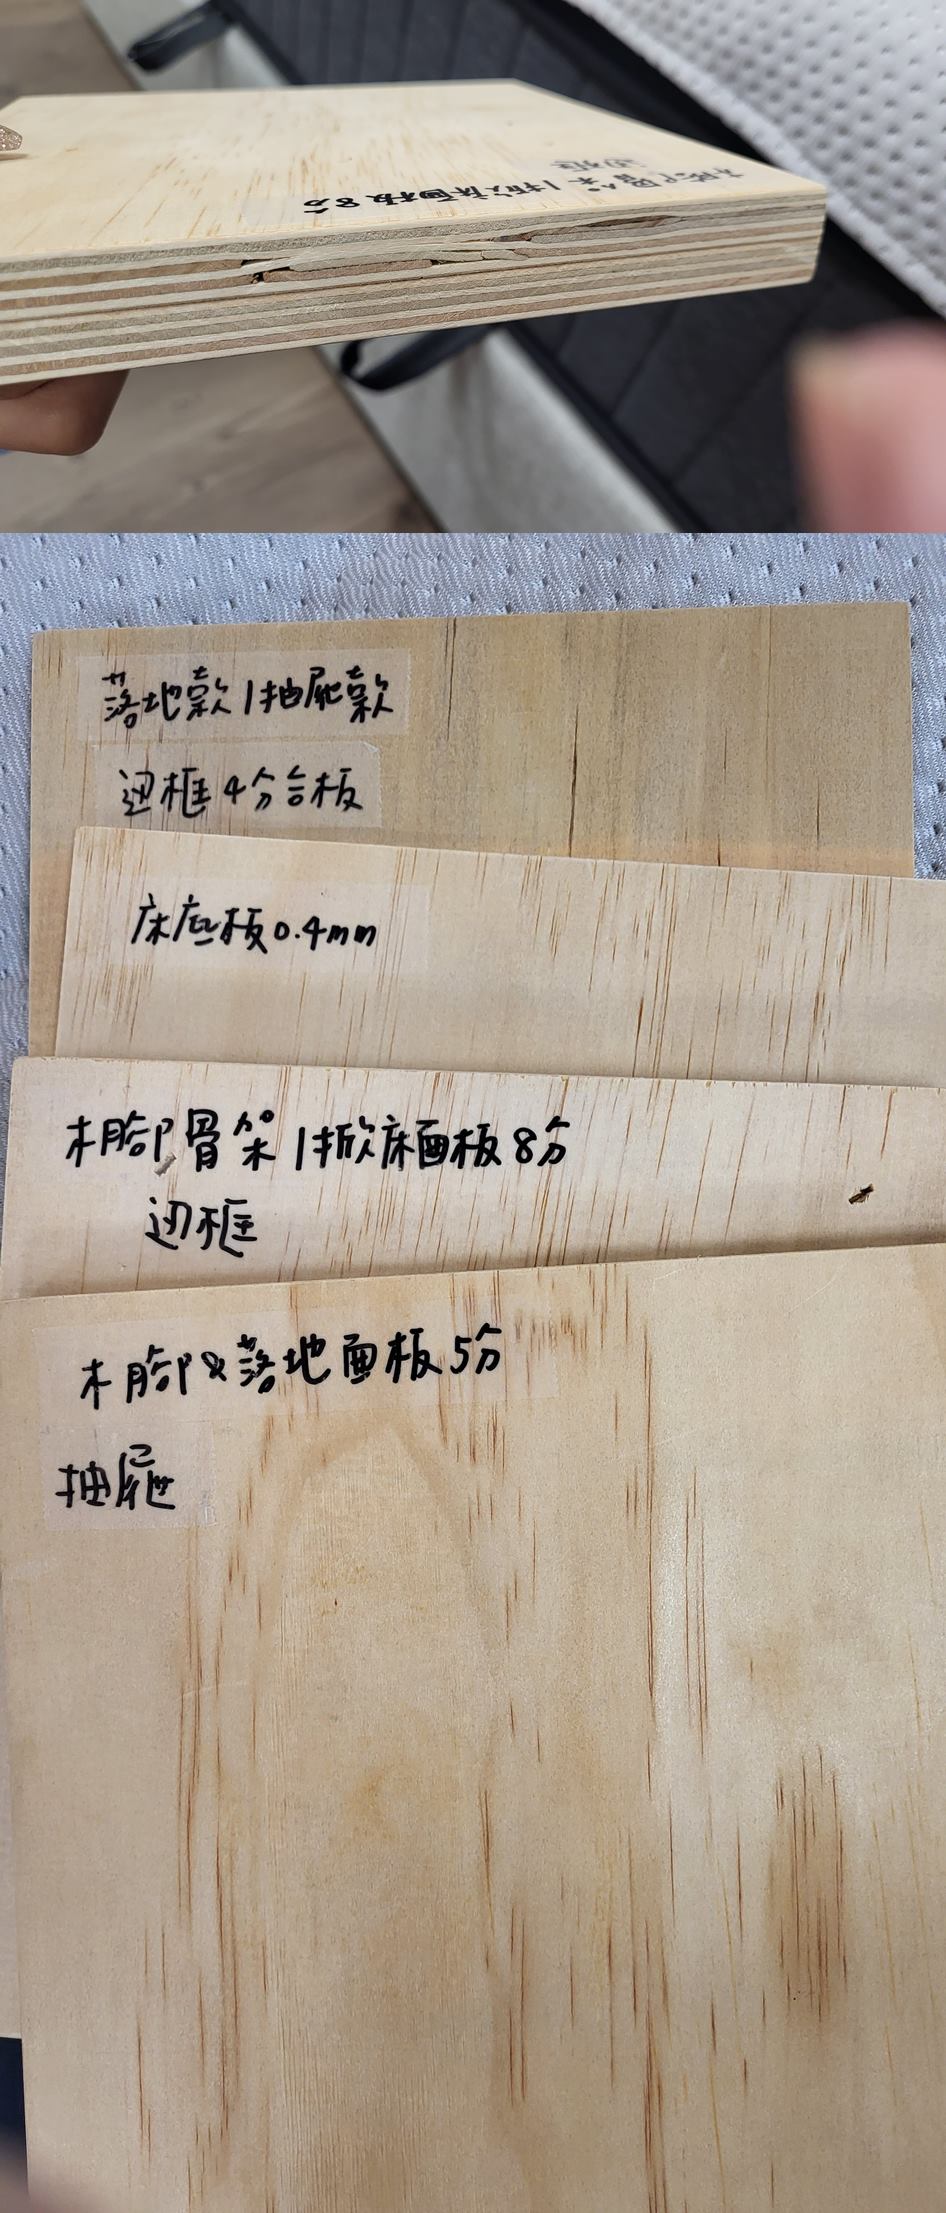 木腳骨架/掀床面板8分
边框
落地款/抽屜款
边框4分合板
床底板0.4mm
木腳骨架/掀床面板8分
边框
木腳&落地面板5分
抽屜